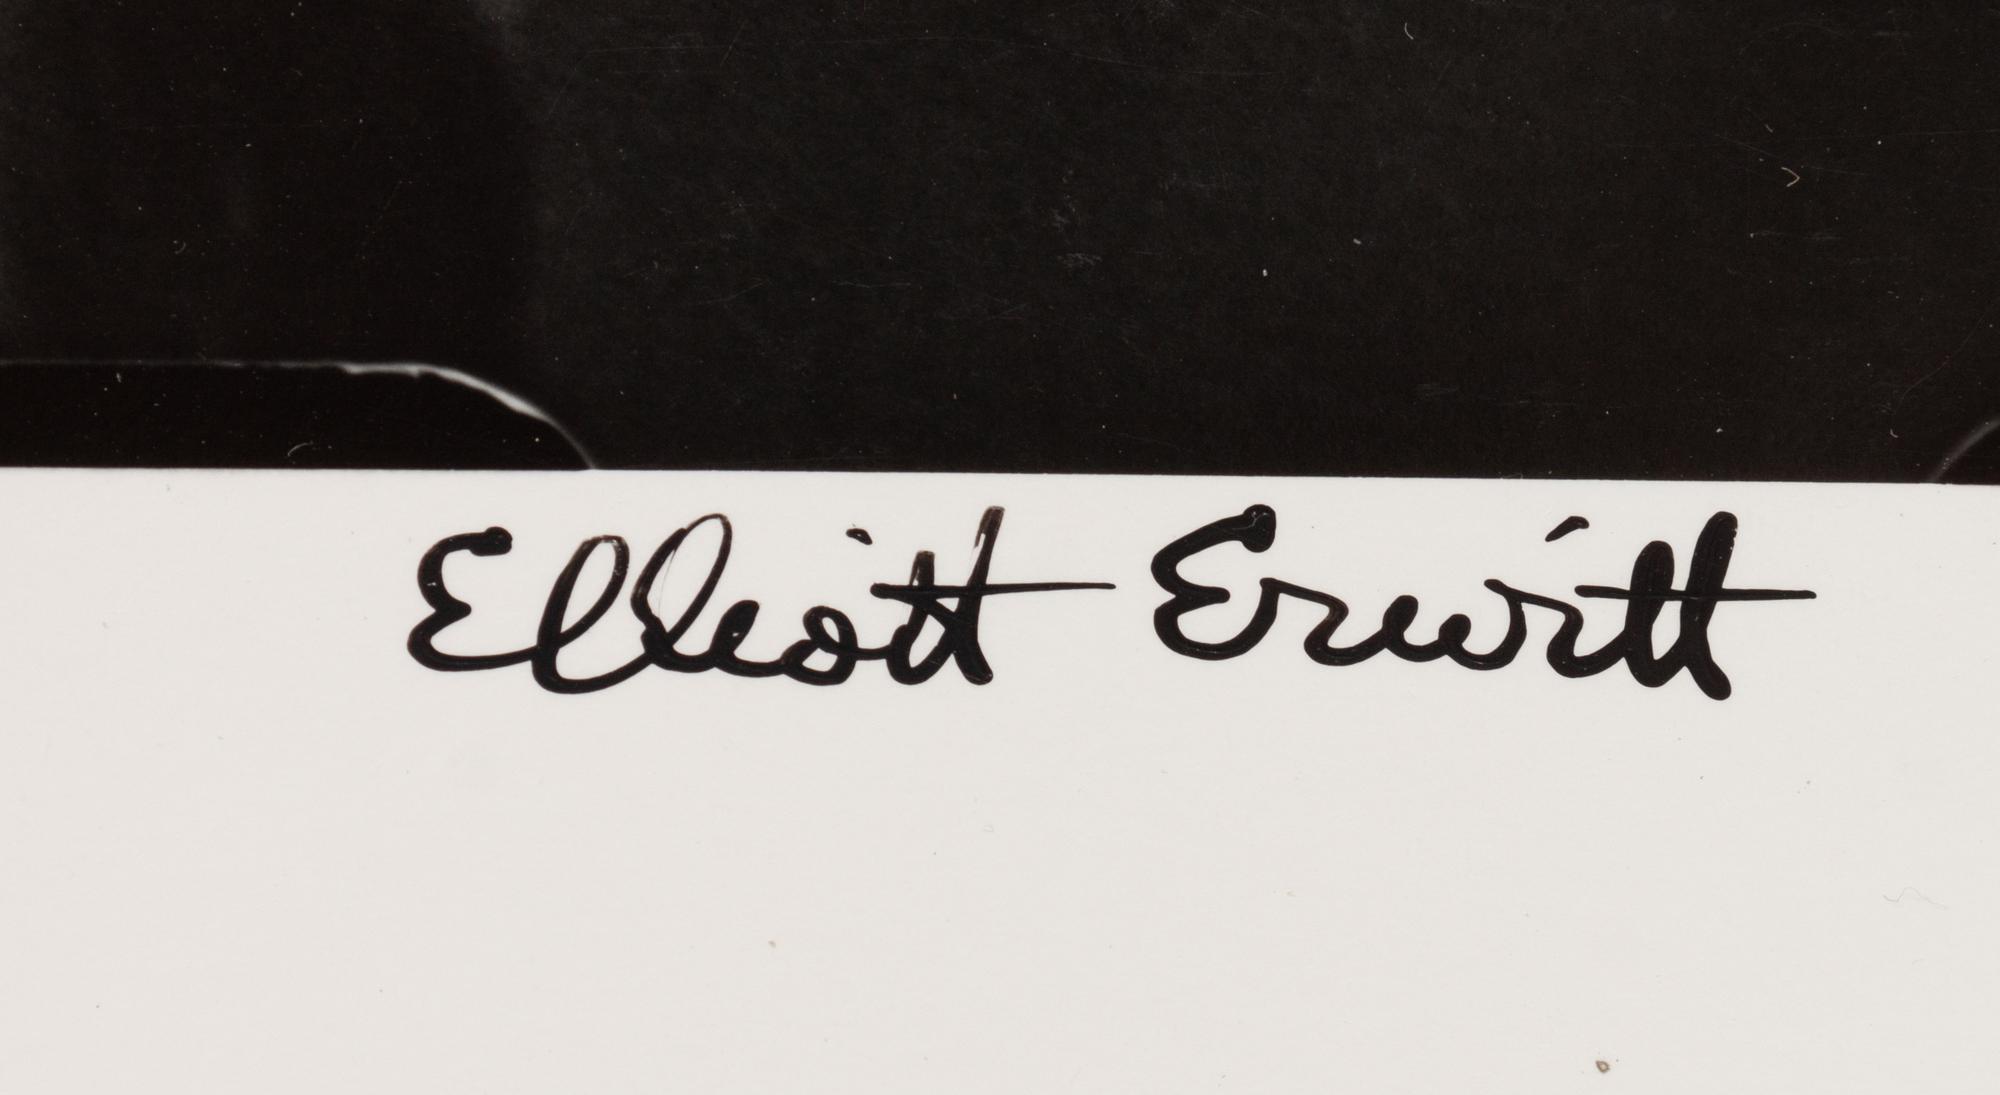 Elliott Erwitt